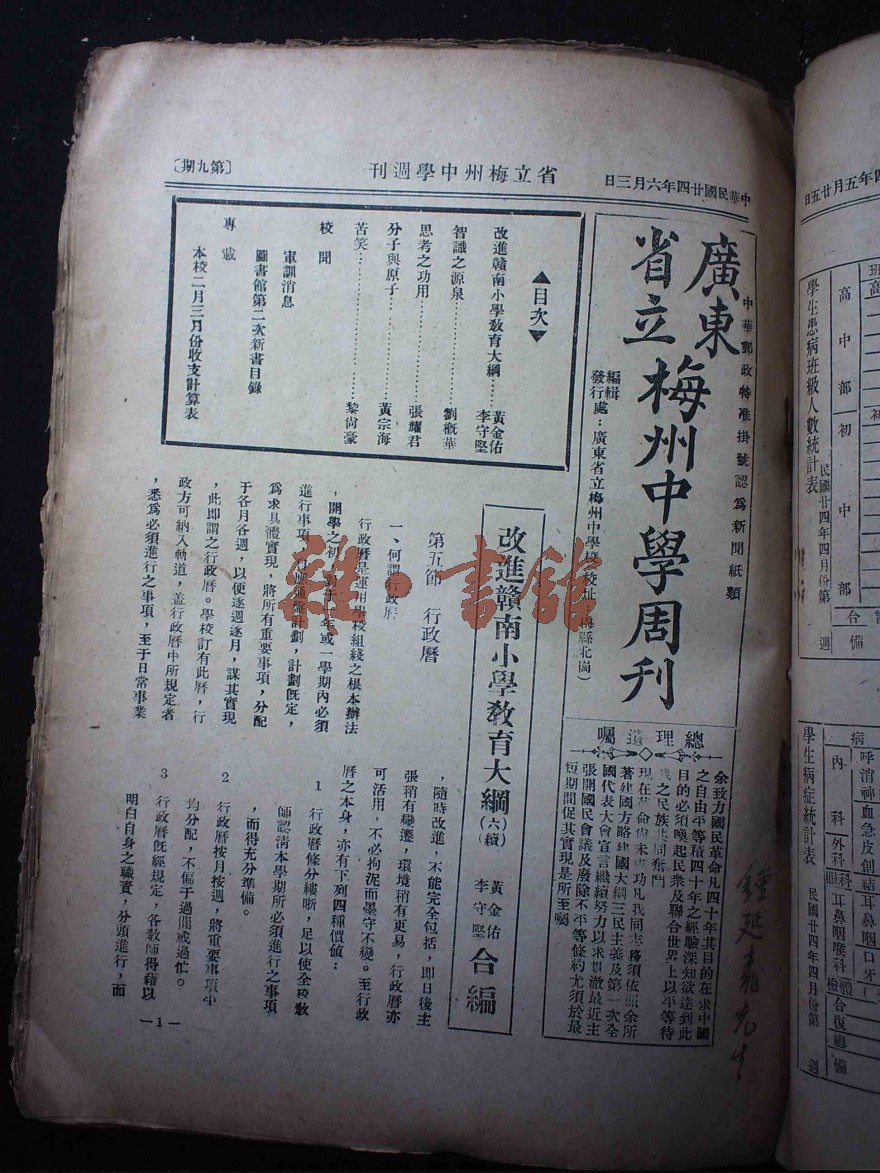 中華民國廿四年六月三日
省立梅州中學週刊
〔第九期〕
中華郵政特准掛號認爲新聞紙類
廣東
省立
梅州中學周刊
編輯
發行處：廣東省立梅州中學校
校址
縣北崗）
▲目次▼
改進贛南小學教育大綱……黃金佑
李守堅
智識之源泉……劉概華
思考之功用……張耀君
分子與原子……黃宗海
苦笑……黎尙豪
校聞
軍訓消息
圖書館第二次新書目錄
專載
本校二月三月份收支計算表
總理遺囑
余致力國民革命凡四十年其目的在求中國
之自由平等積四十年之經驗深知欲達到此
目的必須喚起民衆及聯合世界上以平等待
我之民族共同奮鬥
現在革命尙未成功凡我同志務須依照余所
著建國方略建國大綱三民主義及第一次全
國代表大會宣言繼續努力以求貫澈最近主
張開國民會議及廢除不平等條約尤須於最
短期間促其實現是所至囑
改進贛南小學敎育大綱（六續）
黃金佑
李守堅
合編
第五節　行政曆
一、何謂行政曆
行政曆是運用學校組織之根本辦法
，開學之初，對于一年或一學期內必須
進行事項，計劃旣定，
爲求具體實現，將所有重要事項，分配
于各月各週，以便逐週逐月，謀其實現
，此卽謂之行政曆。學校訂有此曆，行
政方可納入軌道，盖行政曆中所規定者
，悉爲必須進行之事項，至于日常事業
，隨時改進，不能完全包括，卽日後主
張稍有變遷，環境稍有更易，行政曆亦
可活用，不必拘泥而墨守不變。至行政
曆之本身，亦有下列四種價值：
1　行政曆條分縷晰，足以使全校敎
師認淸本學期所必須進行之事項
，而得充分準備。
2　行政曆按月按週，將重要事項平
均分配，不偏于過閒或過忙。
3　行政曆旣經規定，各敎師得藉以
明白自身之職責，分頭進行，而
—1—
雜·書館
鍾延
先生
四年五月廿五日
學生患病班級人數統計表
民國廿四年四月份第　週
班
高中部
初中部
合
備
學生病症統計表
民國廿四年四月份第　週
病
內科
外科
眼科
耳鼻咽喉科
合
復
總
備